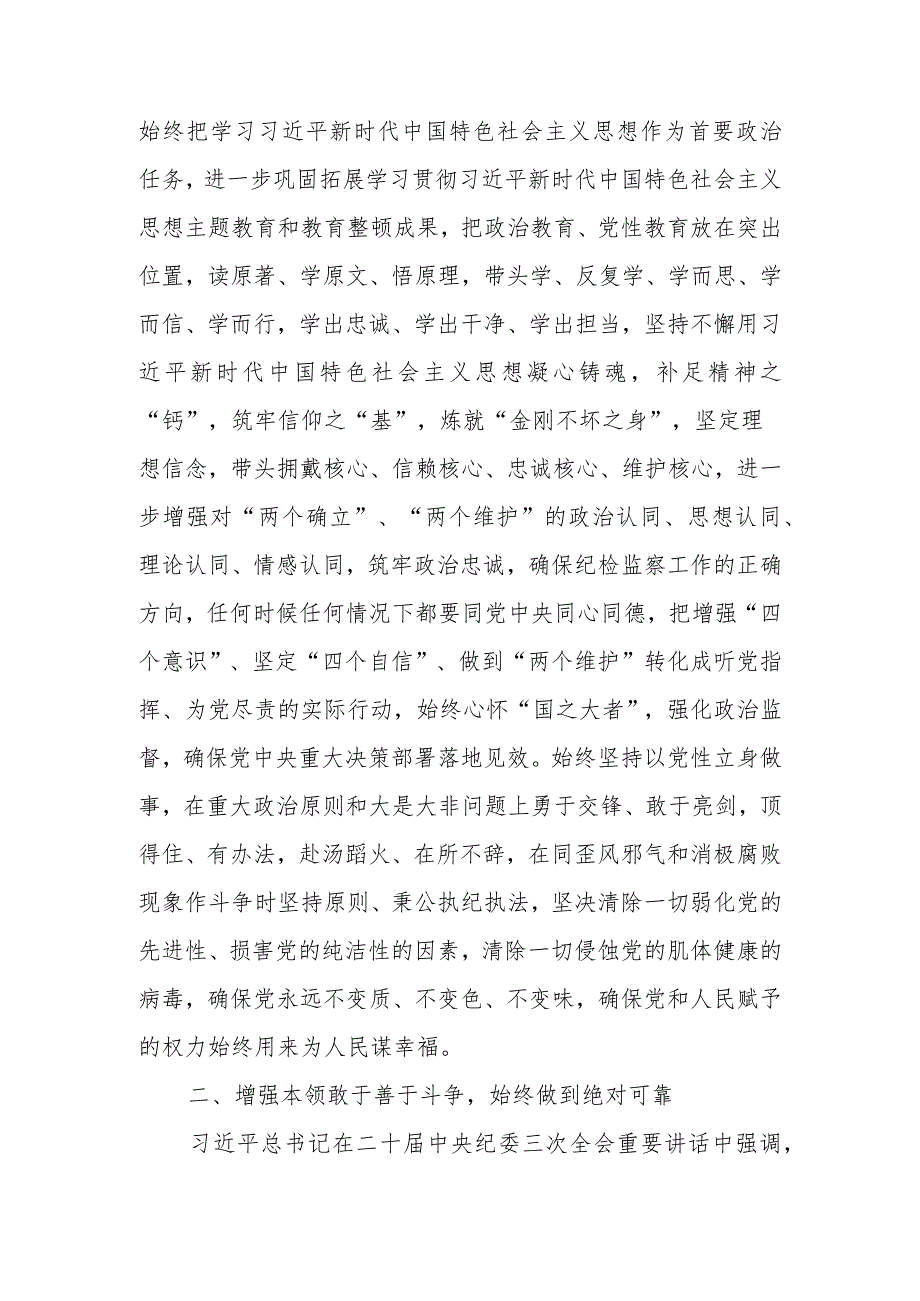 始终把学习习近平新时代中国特色社会主义思想作为首要政治
任务，进一步巩固拓展学习贯彻习近平新时代中国特色社会主义
思想主题教育和教育整顿成果，把政治教育、党性教育放在突出
位置，读原著、学原文、悟原理，带头学、反复学、学而思、学
而信、学而行，学出忠诚、学出干净、学出担当，坚持不懈用习
近平新时代中国特色社会主义思想凝心铸魂，补足精神之
“钙”，筑牢信仰之“基”，炼就“金刚不坏之身”，坚定理
想信念，带头拥戴核心、信赖核心、忠诚核心、维护核心，进一
步增强对“两个确立”、“两个维护”的政治认同、思想认同、
理论认同、情感认同，筑牢政治忠诚，确保纪检监察工作的正确
方向，任何时候任何情况下都要同党中央同心同德，把增强“四
个意识”、坚定“四个自信”、做到“两个维护”转化成听党指
挥、为党尽责的实际行动，始终心怀“国之大者”，强化政治监
督，确保党中央重大决策部署落地见效。始终坚持以党性立身做
事，在重大政治原则和大是大非问题上勇于交锋、敢于亮剑，顶
得住、有办法，赴汤蹈火、在所不辞，在同歪风邪气和消极腐败
现象作斗争时坚持原则、秉公执纪执法，坚决清除一切弱化党的
先进性、损害党的纯洁性的因素，清除一切侵蚀党的肌体健康的
病毒，确保党永远不变质、不变色、不变味，确保党和人民赋予
的权力始终用来为人民谋幸福。
二、增强本领敢于善于斗争，始终做到绝对可靠
习近平总书记在二十届中央纪委三次全会重要讲话中强调，